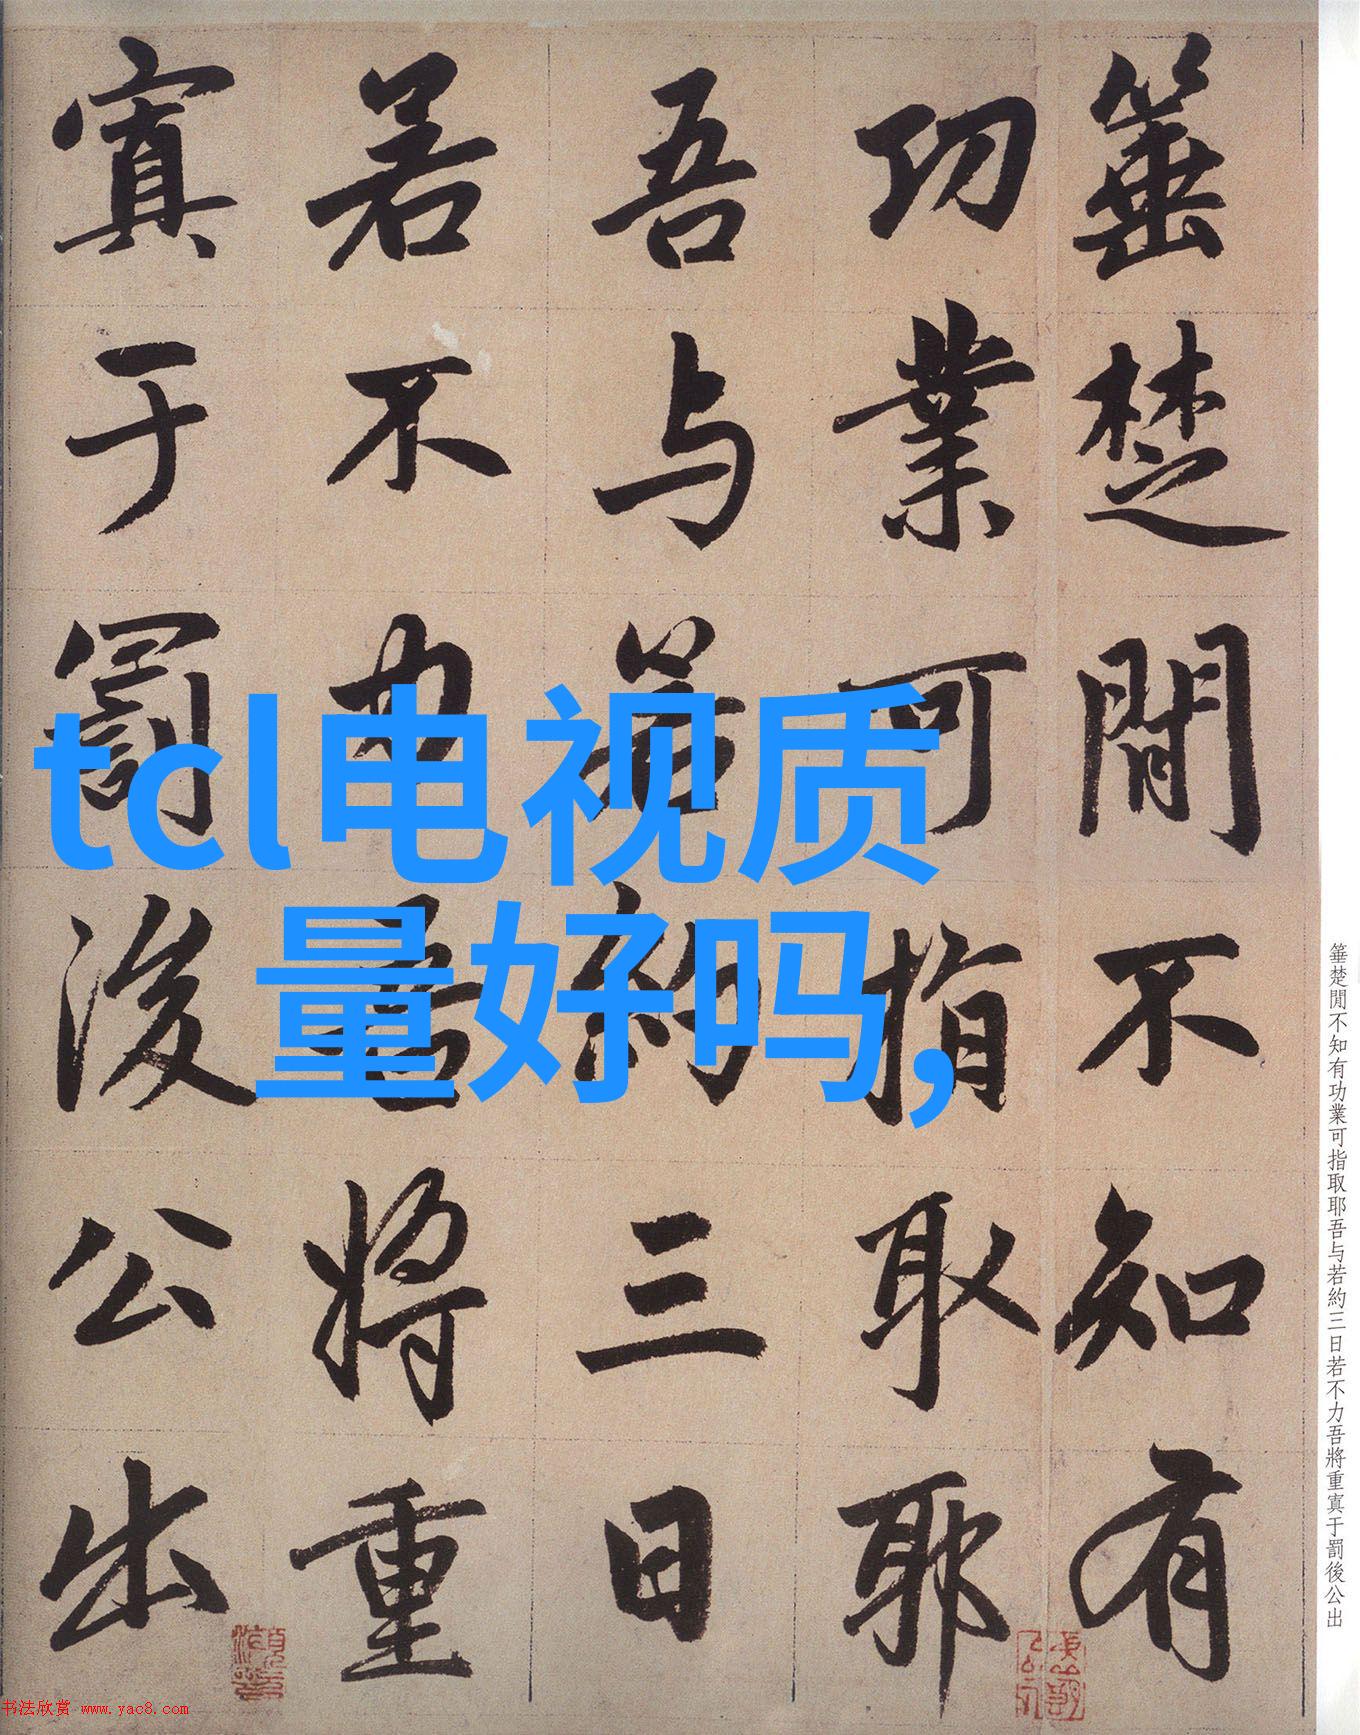 箠楚間不知有
功業可指取耶
吾与若約三日
若不力吾將重
寘于罰後公出
tcl电视质
量好吗,
箠楚閒不知有功業可指取耶吾与若約三日若不力吾將重寘于罰後公出
书法欣赏 www.yac8.com